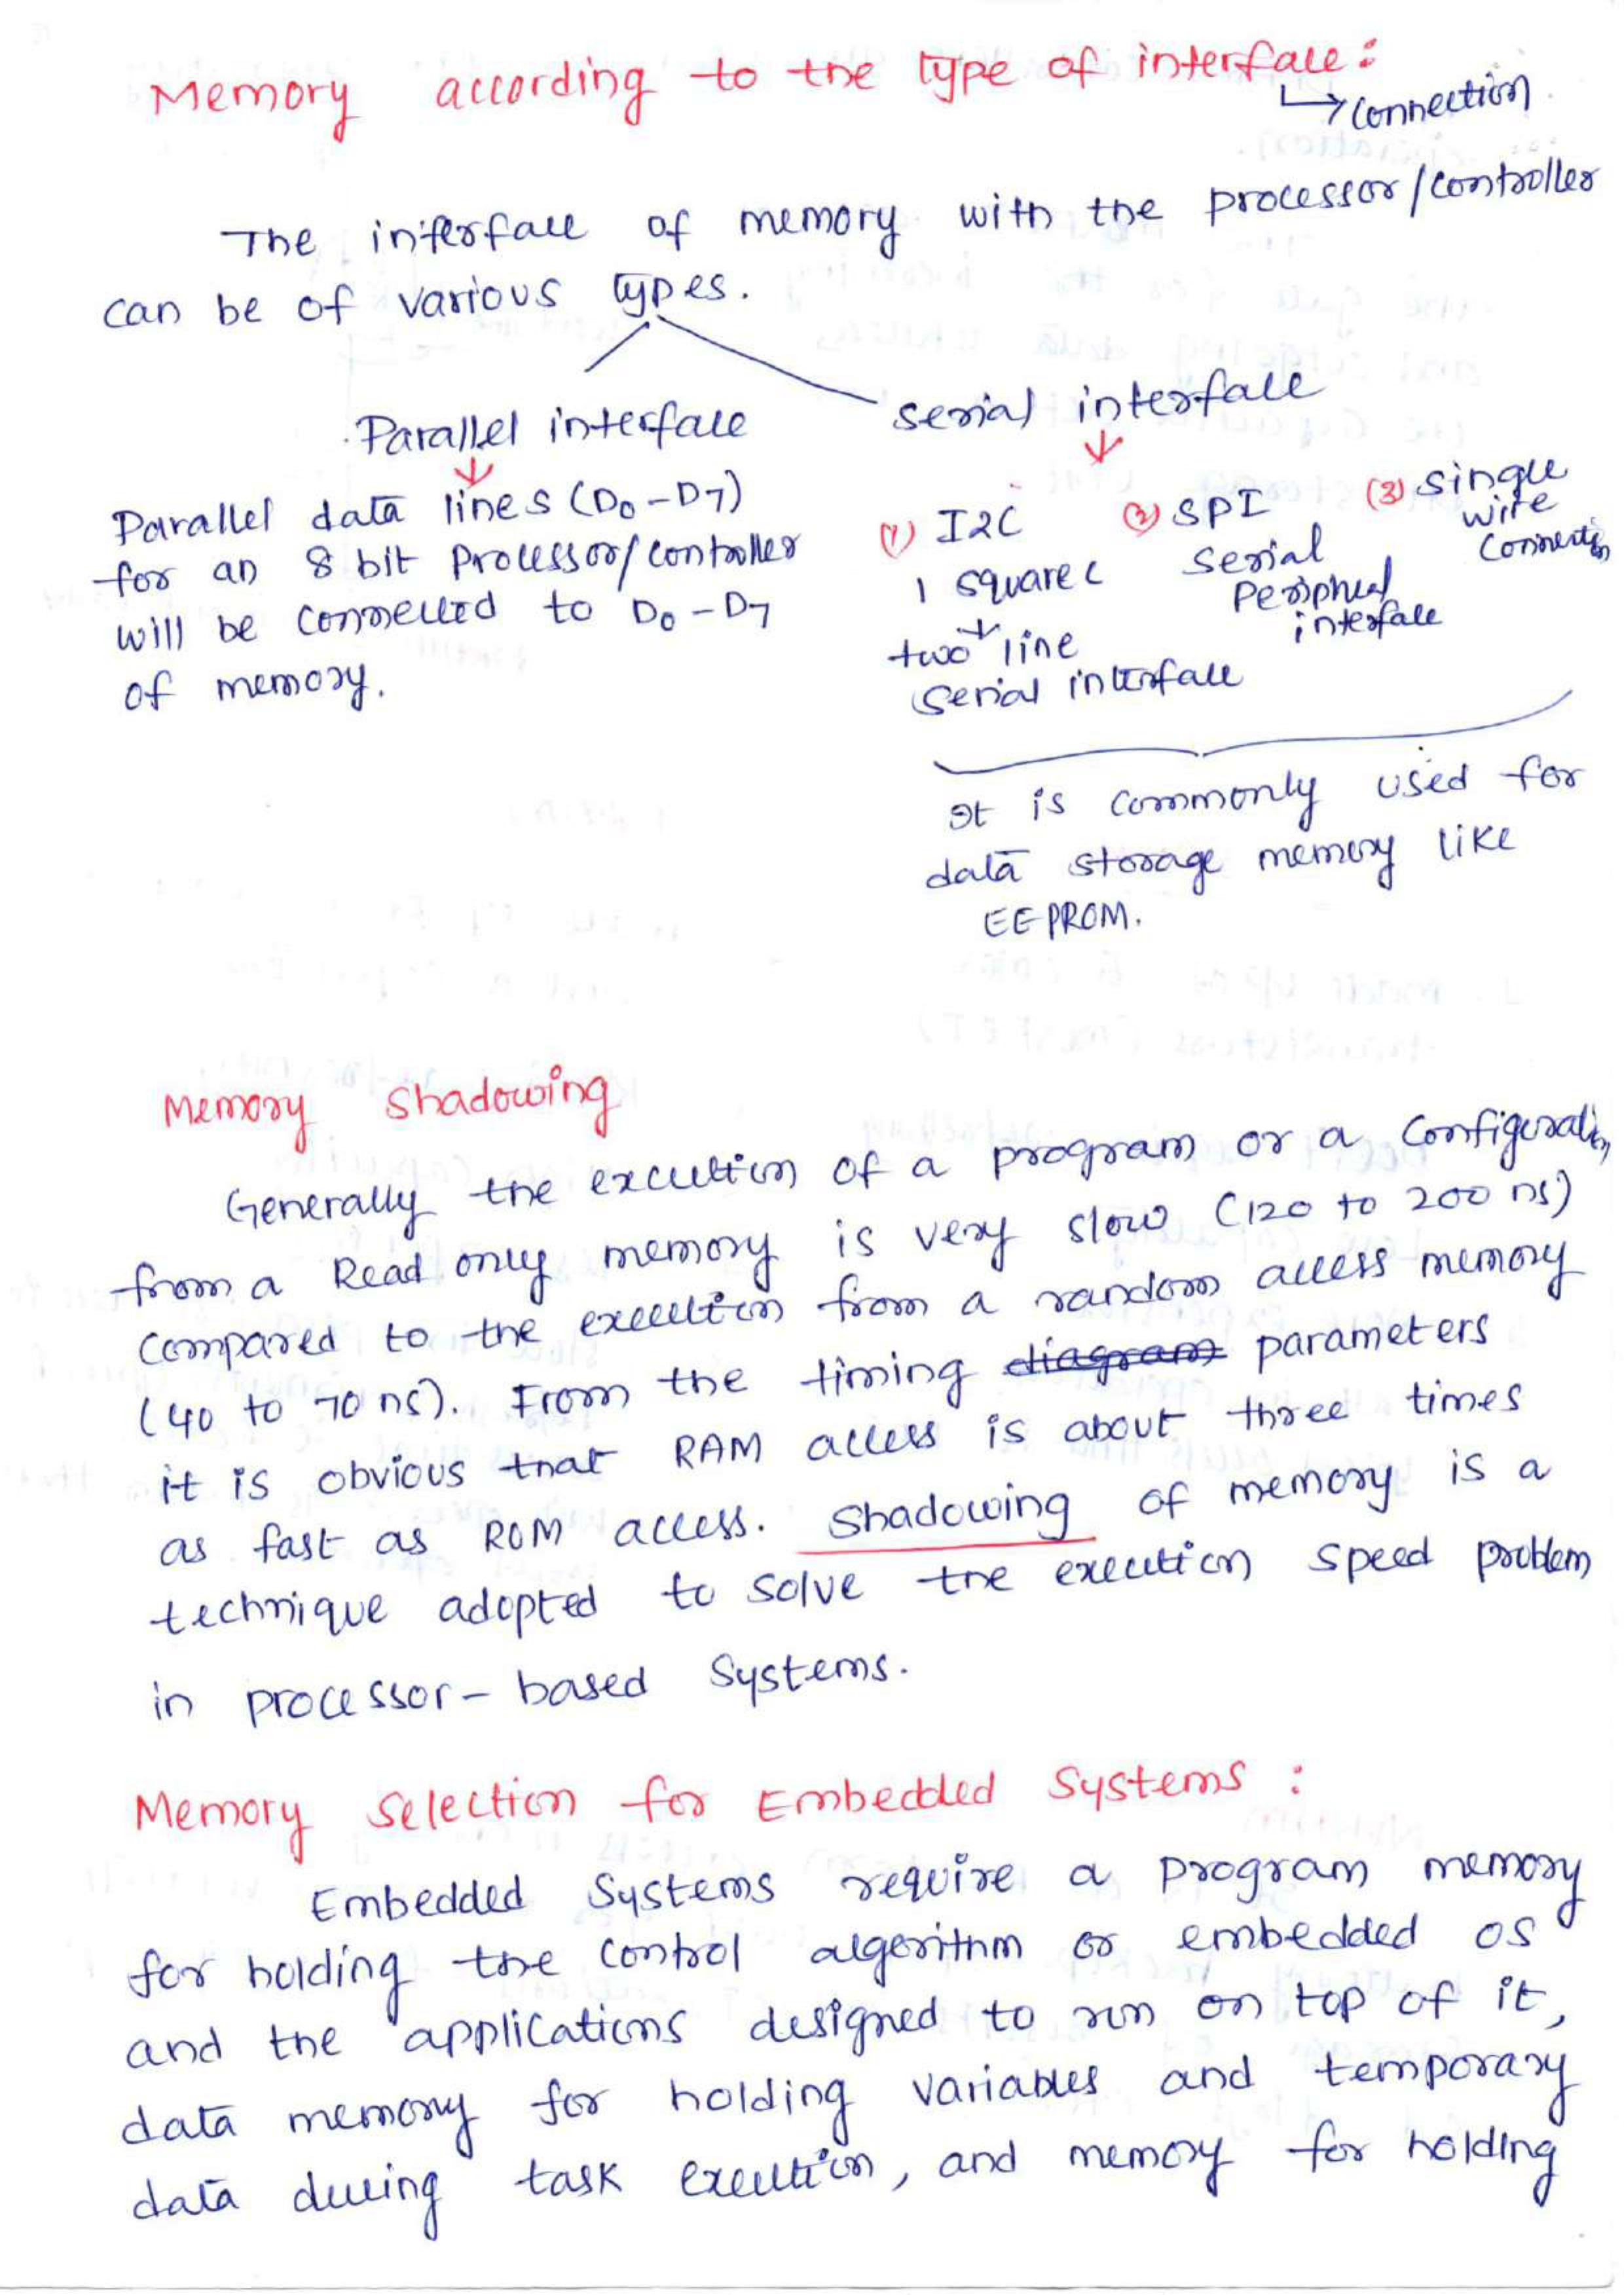 Memory according to the type of interface:
↳ Connection
The interface of memory with the processor/controller
can be of various types.
Parallel interface
Parallel data lines (D0-D7)
for an 8 bit Processor/controller
will be connected to D0-D7
of memory.
serial interface
(1) I2C
1 square c
two line
serial interface
(2) SPI
serial
Peripheral
interface
(3) single
wire
connection
It is commonly used for
data storage memory like
EEPROM.
Memory Shadowing
Generally the execution of a program or a configuration
from a Read only memory is very slow (120 to 200 ns)
compared to the execution from a random access memory
(40 to 70 ns). From the timing diagram parameters
it is obvious that RAM access is about three times
as fast as ROM access. Shadowing of memory is a
technique adopted to solve the execution speed problem
in processor-based systems.
Memory selection for Embedded Systems :
Embedded Systems require a program memory
for holding the control algorithm or embedded OS
and the applications designed to run on top of it,
data memory for holding variables and temporary
data during task execution, and memory for holding